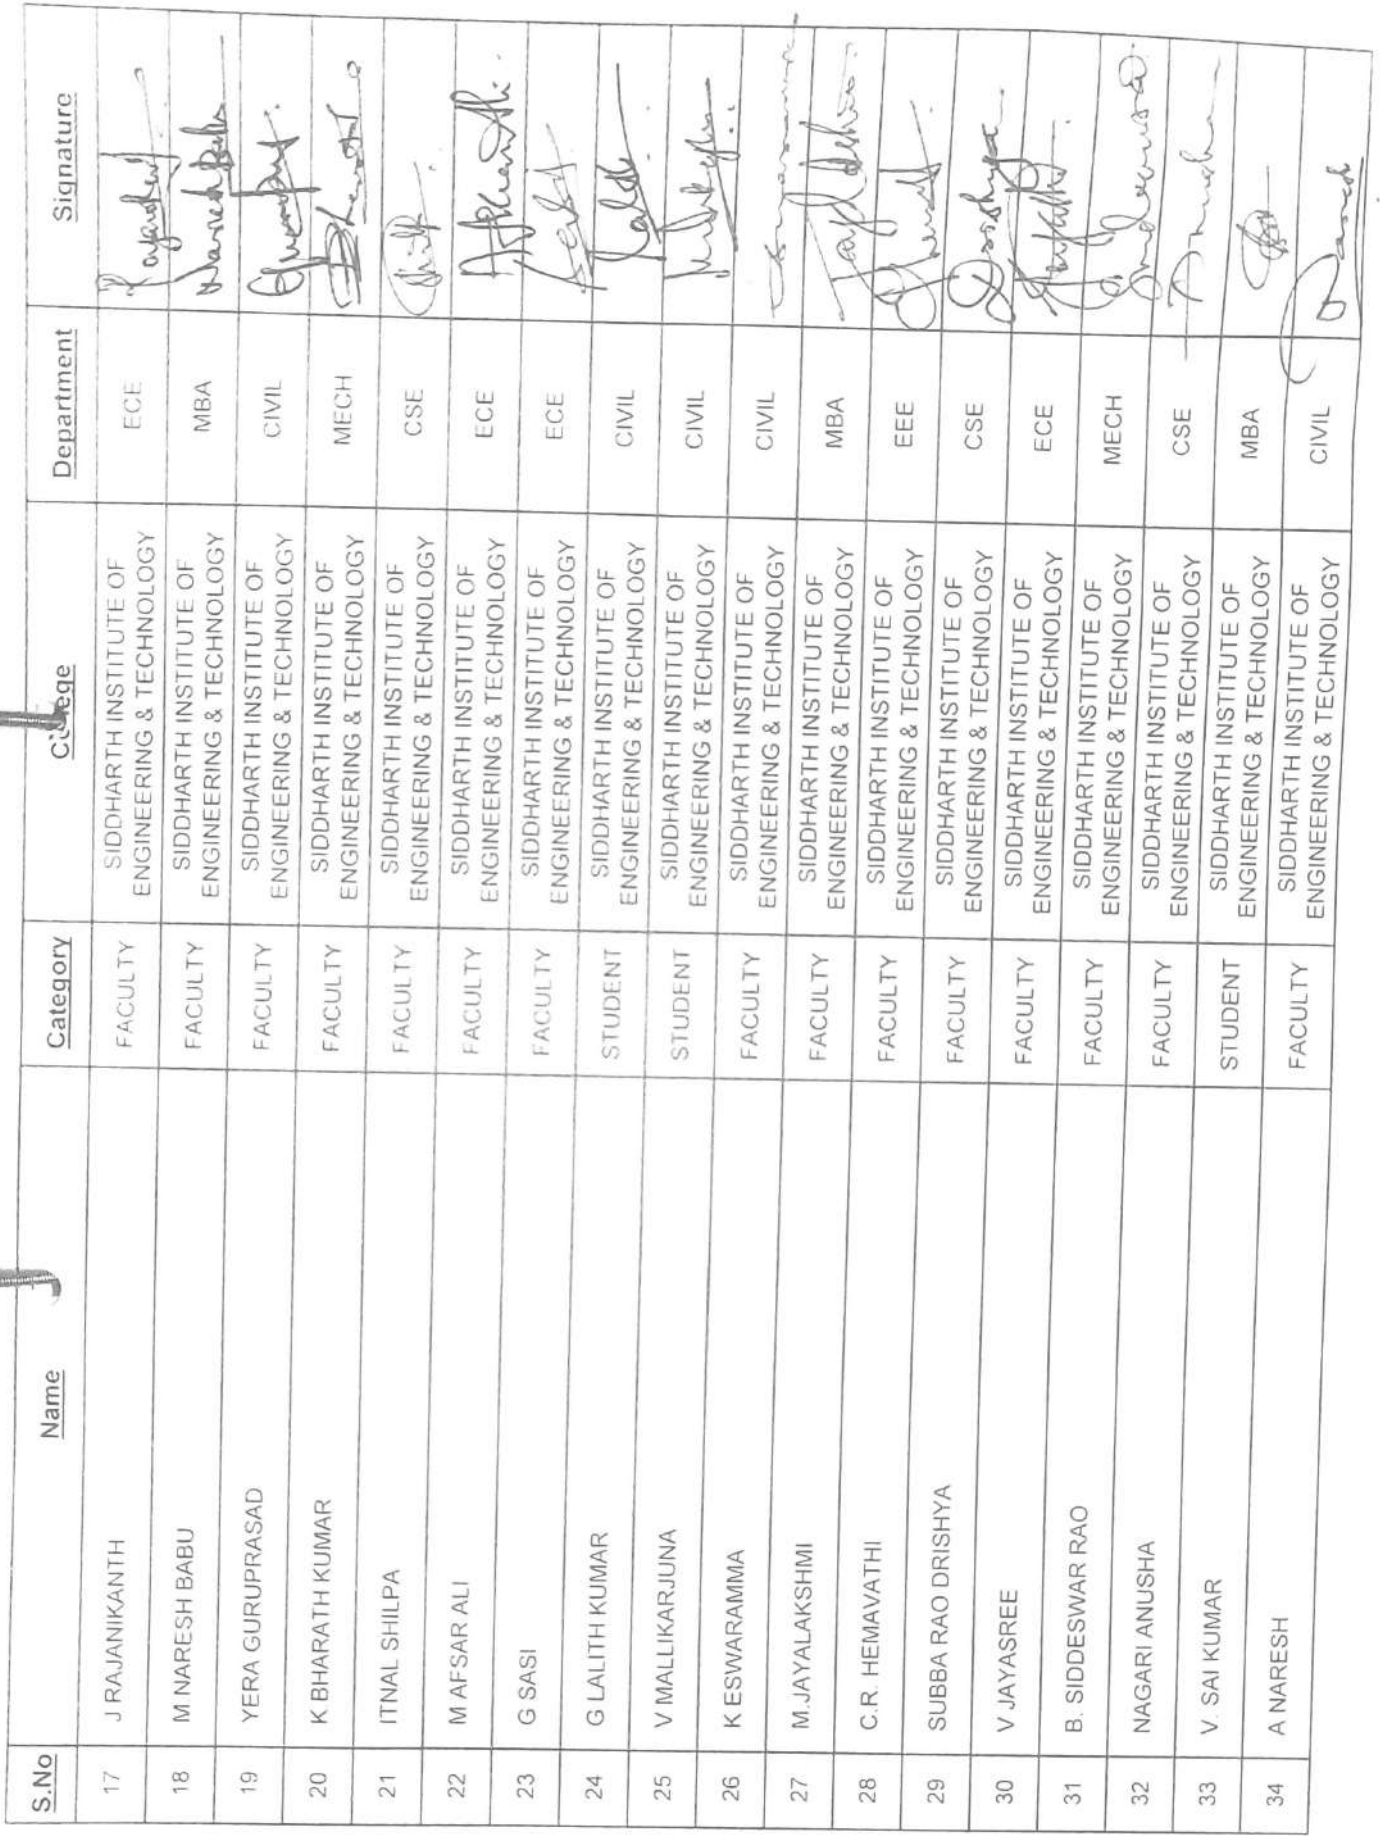 S.No Name College Category Department Signature
17 J RAJANIKANTH FACULTY SIDDHARTH INSTITUTE OF
ENGINEERING & TECHNOLOGY ECE
18 M NARESH BABU FACULTY SIDDHARTH INSTITUTE OF
ENGINEERING & TECHNOLOGY MBA
19 YERA GURUPRASAD FACULTY SIDDHARTH INSTITUTE OF
ENGINEERING & TECHNOLOGY CIVIL
20 K BHARATH KUMAR FACULTY SIDDHARTH INSTITUTE OF
ENGINEERING & TECHNOLOGY MECH
21 ITNAL SHILPA FACULTY SIDDHARTH INSTITUTE OF
ENGINEERING & TECHNOLOGY CSE
22 M AFSAR ALI FACULTY SIDDHARTH INSTITUTE OF
ENGINEERING & TECHNOLOGY ECE
23 G SASI FACULTY SIDDHARTH INSTITUTE OF
ENGINEERING & TECHNOLOGY ECE
24 G LALITH KUMAR STUDENT SIDDHARTH INSTITUTE OF
ENGINEERING & TECHNOLOGY CIVIL
25 V MALLIKARJUNA STUDENT SIDDHARTH INSTITUTE OF
ENGINEERING & TECHNOLOGY CIVIL
26 K ESWARAMMA FACULTY SIDDHARTH INSTITUTE OF
ENGINEERING & TECHNOLOGY CIVIL
27 M.JAYALAKSHMI FACULTY SIDDHARTH INSTITUTE OF
ENGINEERING & TECHNOLOGY MBA
28 C.R. HEMAVATHI FACULTY SIDDHARTH INSTITUTE OF
ENGINEERING & TECHNOLOGY EEE
29 SUBBA RAO DRISHYA FACULTY SIDDHARTH INSTITUTE OF
ENGINEERING & TECHNOLOGY CSE
30 V JAYASREE FACULTY SIDDHARTH INSTITUTE OF
ENGINEERING & TECHNOLOGY ECE
31 B. SIDDESWAR RAO FACULTY SIDDHARTH INSTITUTE OF
ENGINEERING & TECHNOLOGY MECH
32 NAGARI ANUSHA FACULTY SIDDHARTH INSTITUTE OF
ENGINEERING & TECHNOLOGY CSE
33 V. SAI KUMAR STUDENT SIDDHARTH INSTITUTE OF
ENGINEERING & TECHNOLOGY MBA
34 A NARESH FACULTY SIDDHARTH INSTITUTE OF
ENGINEERING & TECHNOLOGY CIVIL